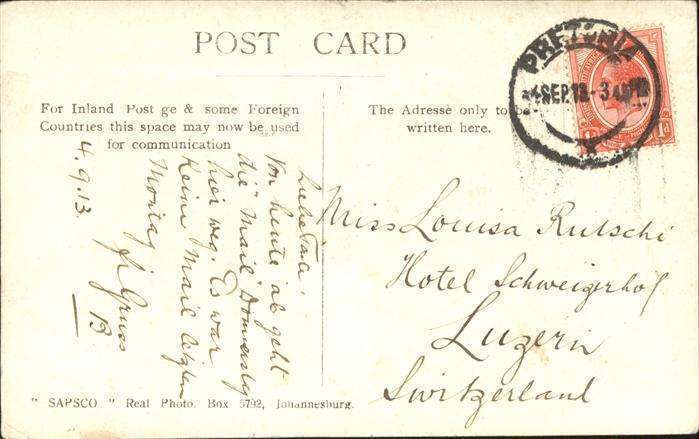 POST CARD
For Inland Post ge & some Foreign
Countries this space may now be used
for communication
The Adresse only to be
written here.
PRETORIA
4 SEP 13 - 3 40 PM
4.9.13.
Liebe
Von heute ab geht
die "Mail" Donnerstag
hier weg. Es war
keine Mail letzten
Montag
Gruss
B
Miss Louisa Rutschi
Hotel Schweizerhof
Luzern
Switzerland
" SAPSCO " Real Photo. Box 5792, Johannesburg.